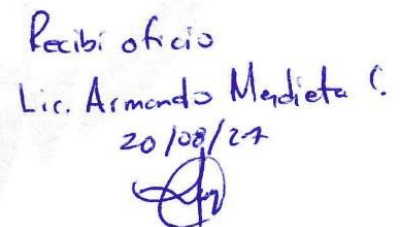 Recibi oficio
Lic. Armando Mendieta C.
20/08/27